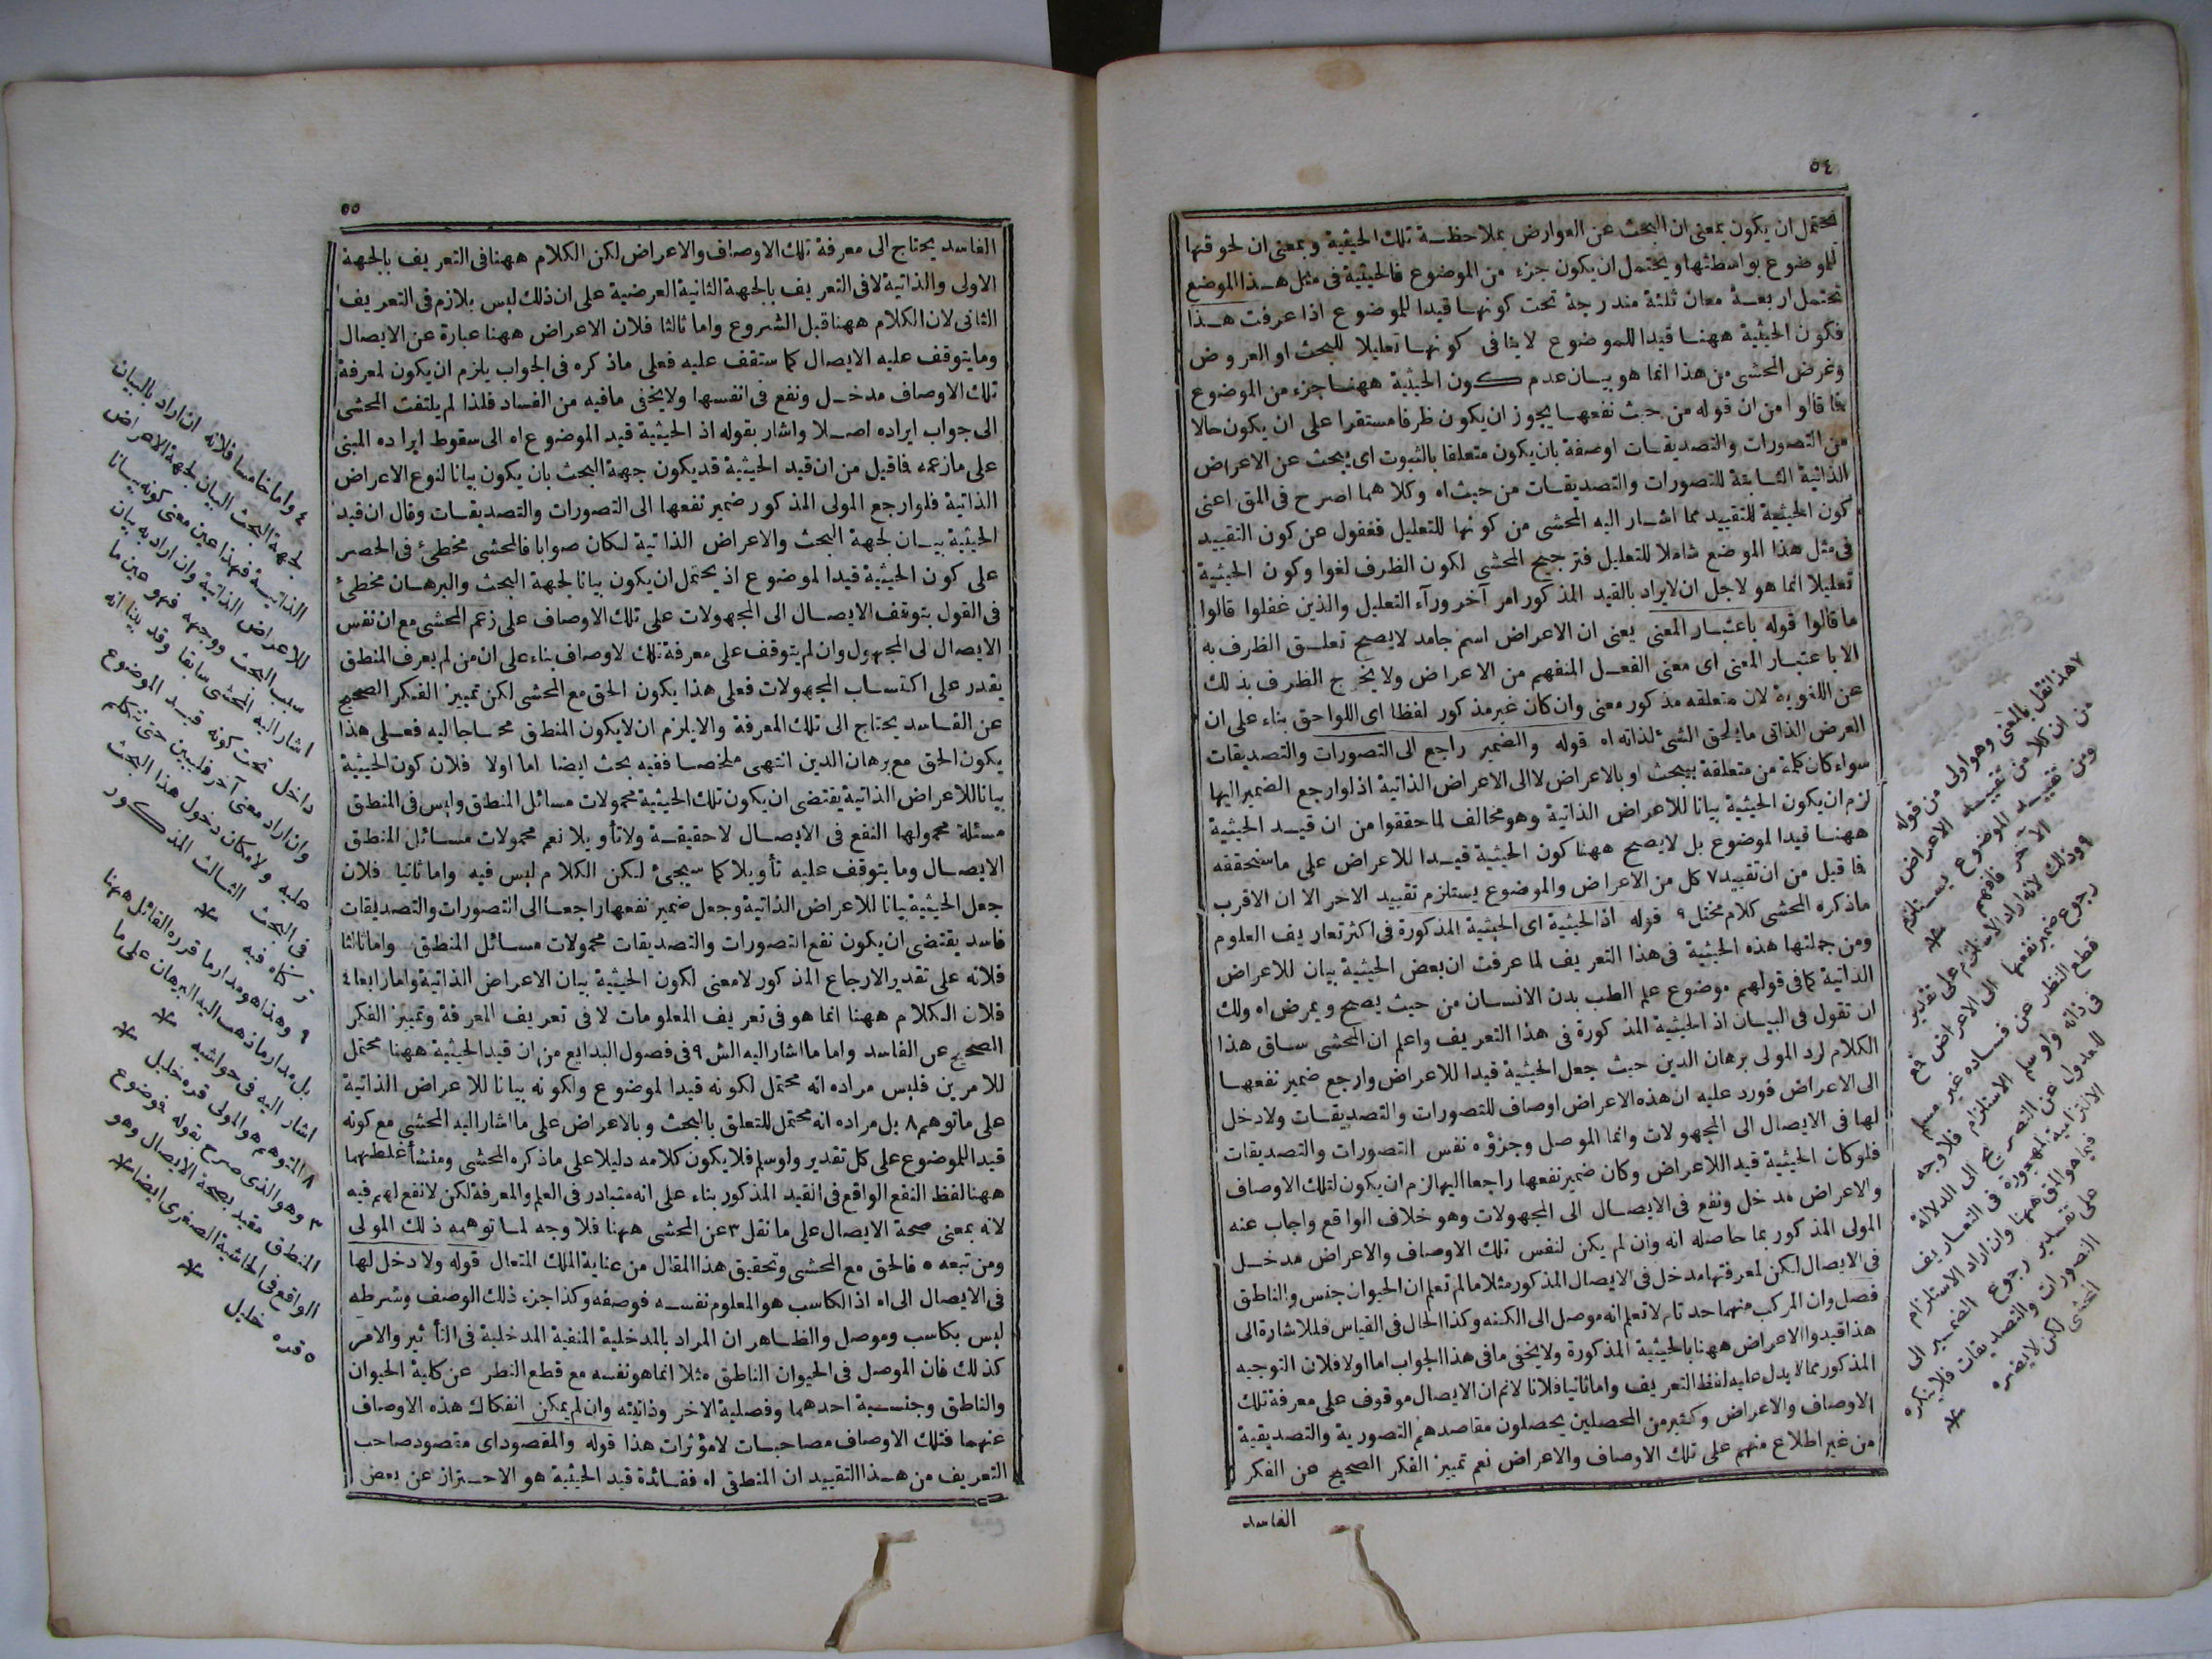 ٥٤
محتمل ان يكون بمعنى ان البحث عن العوارض بملاحظة تلك الحيثية وبمعنى ان لحوقها
للموضوع بواسطتها ويحتمل ان يكون جزء من الموضوع فالحيثية فى مثل هذا الموضع
تحتمل اربعة معان ثلثة مندرجة تحت كونها قيدا للموضوع اذا عرفت هذا
فكون الحيثية ههنا قيدا للموضوع لا ينافى كونها تعليلا للبحث او العروض
وغرض المحشى من هذا انما هو بيان عدم كون الحيثية ههنا جزء من الموضوع
فما قالوا من ان قوله من حيث نفعها يجوز ان يكون ظرفا مستقرا على ان يكون حالا
من التصورات والتصديقات اوصفة بان يكون متعلقا بالثبوت اى يبحث عن الاعراض
الذاتية الثابتة للتصورات والتصديقات من حيث اه وكلاهما اصرح فى المق اعنى
كون الحيثية للتقييد مما اشار اليه المحشى من كونها للتعليل فغفول عن كون التقييد
فى مثل هذا الموضع شاملا للتعليل فترجيح المحشى لكون الظرف لغوا وكون الحيثية
تعليلا انما هو لاجل ان لايراد بالقيد المذكور امر آخر ورآء التعليل والذين غفلوا قالوا
ما قالوا قوله باعتبار المعنى يعنى ان الاعراض اسم جامد لا يصح تعلق الظرف به
الا باعتبار المعنى اى معنى الفعل المنفهم من الاعراض ولا يخرج الظرف بذلك
عن اللغوية لان متعلقه مذكور معنى وان كان غير مذكور لفظا اى اللواحق بناء على ان
العرض الذاتى ما يلحق الشئ لذاته اه قوله والضمير راجع الى التصورات والتصديقات
سواء كان كلمة من متعلقة بيبحث او بالاعراض لا الى الاعراض الذاتية اذ لو ارجع الضمير اليها
لزم ان يكون الحيثية بيانا للاعراض الذاتية وهو مخالف لما حققوا من ان قيد الحيثية
ههنا قيدا لموضوع بل لا يصح ههنا كون الحيثية قيدا للاعراض على ما سنحققه
فا قيل من ان تقييد ٧ كل من الاعراض والموضوع يستلزم تقييد الاخر الا ان الاقرب
ماذكره المحشى كلام مختل ٩ قوله اذ الحيثية اى الحيثية المذكورة فى اكثر تعاريف العلوم
ومن جملتها هذه الحيثية فى هذا التعريف لما عرفت ان بعض الحيثية بيان للاعراض
الذاتية كما فى قولهم موضوع علم الطب بدن الانسان من حيث يصح ويمرض اه ولك
ان تقول فى البيان اذ الحيثية المذكورة فى هذا التعريف واعلم ان المحشى ساق هذا
الكلام لرد المولى برهان الدين حيث جعل الحيثية قيدا للاعراض وارجع ضمير نفعها
الى الاعراض فورد عليه ان هذه الاعراض اوصاف للتصورات والتصديقات ولا دخل
لها فى الايصال الى المجهولات وانما الموصل وجزؤه نفس التصورات والتصديقات
فلو كان الحيثية قيدا للاعراض وكان ضمير نفعها راجعا اليها لزم ان يكون لتلك الاوصاف
والاعراض مدخل ونفع فى الايصال الى المجهولات وهو خلاف الواقع واجاب عنه
المولى المذكور بما حاصله انه وان لم يكن لنفس تلك الاوصاف والاعراض مدخل
فى الايصال لكن لمعرفتها مدخل فى الايصال المذكور مثلا ما لم تعلم ان الحيوان جنس والناطق
فصل وان المركب منهما حد تام لا تعلم انه موصل الى الكنه وكذا الحال فى القياس فللاشارة الى
هذا قيدوا الاعراض ههنا بالحيثية المذكورة ولا يخفى ما فى هذا الجواب اما اولا فلان التوجيه
المذكور مما لا يدل عليه لفظ التعريف واما ثانيا فلانا لانم ان الايصال موقوف على معرفة تلك
الاوصاف والاعراض وكثير من المحصلين يحصلون مقاصدهم التصورية والتصديقية
من غير اطلاع منهم على تلك الاوصاف والاعراض نعم تمييز الفكر الصحيح عن الفكر
الفاسد
٧ هذا نقل بالمعنى وهو اولى من قوله
من ان كلا من تقييد الاعراض
ومن تقييد الموضوع يستلزم
الآخر فافهم *
٩ وذلك لانه اراد الاستلزام على تقدير
رجوع ضمير نفعها الى الاعراض فمع
قطع النظر عن فساده غير مسلم
فى ذاته ولو سلم الاستلزام فلا وجه
للعدول عن التصريح الى الدلالة
الالتزامية المهجورة فى التعاريف
فيما هو المق ههنا وان اراد الاستلزام
على تقدير رجوع الضمير الى
التصورات والتصديقات فلا ينكره
المحشى لكن لا يضره *
٥٥
الفاسد يحتاج الى معرفة تلك الاوصاف والاعراض لكن الكلام ههنا فى التعريف بالجهة
الاولى والذاتية لا فى التعريف بالجهة الثانية العرضية على ان ذلك ليس بلازم فى التعريف
الثانى لان الكلام ههنا قبل الشروع واما ثالثا فلان الاعراض ههنا عبارة عن الايصال
وما يتوقف عليه الايصال كما ستقف عليه فعلى ماذكره فى الجواب يلزم ان يكون لمعرفة
تلك الاوصاف مدخل ونفع فى انفسها ولا يخفى مافيه من الفساد فلذا لم يلتفت المحشى
الى جواب ايراده اصلا واشار بقوله اذ الحيثية قيد الموضوع اه الى سقوط ايراده المبنى
على مازعمه فاقيل من ان قيد الحيثية قد يكون جهة البحث بان يكون بيانا لنوع الاعراض
الذاتية فلو ارجع المولى المذكور ضمير نفعها الى التصورات والتصديقات وقال ان قيد
الحيثية بيان لجهة البحث والاعراض الذاتية لكان صوابا فالمحشى مخطئ فى الحصر
على كون الحيثية قيدا لموضوع اذ يحتمل ان يكون بيانا لجهة البحث والبرهان مخطئ
فى القول بتوقف الايصال الى المجهولات على تلك الاوصاف على زعم المحشى مع ان نفس
الايصال لى المجهول وان لم يتوقف على معرفة تلك لاوصاف بناء على ان من لم يعرف المنطق
يقدر على اكتساب المجهولات فعلى هذا يكون الحق مع المحشى لكن تمييز الفكر الصحيح
عن الفاسد يحتاج الى تلك المعرفة والا يلزم ان لا يكون المنطق محتاجا اليه فعلى هذا
يكون الحق مع برهان الدين انتهى ملخصا ففيه بحث ايضا اما اولا فلان كون الحيثية
بيانا للاعراض الذاتية يقتضى ان يكون تلك الحيثية محمولات مسائل المنطق وليس فى المنطق
مسئلة محمولها النفع فى الايصال لا حقيقة ولا تأويلا نعم محمولات مسائل المنطق
الايصال وما يتوقف عليه تأويلا كما سيجئ لكن الكلام ليس فيه واما ثانيا فلان
جعل الحيثية بيانا للاعراض الذاتية وجعل ضمير نفعها راجعا الى التصورات والتصديقات
فاسد يقتضى ان يكون نفع التصورات والتصديقات محمولات مسائل المنطق واما ثالثا
فلانه على تقدير الارجاع المذكور لا معنى لكون الحيثية بيان الاعراض الذاتية واما رابعا ٤
فلان الكلام ههنا انما هو فى تعريف المعلومات لا فى تعريف المعرفة وتمييز الفكر
الصحيح عن الفاسد واما ما اشار اليه الش ٩ فى فصول البدايع من ان قيد الحيثية ههنا محتمل
للامرين فليس مراده انه محتمل لكونه قيدا لموضوع ولكونه بيانا للاعراض الذاتية
على ماتوهم ٨ بل مراده انه محتمل للتعلق بالبحث وبالاعراض على ما اشار اليه المحشى مع كونه
قيدا للموضوع على كل تقدير ولو سلم فلا يكون كلامه دليلا على ماذكره المحشى ومنشأ غلطهما
ههنا لفظ النفع الواقع فى القيد المذكور بناء على انه متبادر فى العلم والمعرفة لكن لانفع لهم فيه
لانه بمعنى صحة الايصال على ما نقل ٣ عن المحشى ههنا فلا وجه لما توهمه ذلك المولى
ومن تبعه ٥ فالحق مع المحشى وتحقيق هذا المقال من عناية الملك المتعال قوله ولا دخل لها
فى الايصال الى اه اذ الكاسب هو المعلوم نفسه فوصفه وكذا جزء ذلك الوصف وشرطه
ليس بكاسب وموصل والظاهر ان المراد بالمدخلية المنفية المدخلية فى التأثير والامر
كذلك فان الموصل فى الحيوان الناطق مثلا انما هو نفسه مع قطع النظر عن كلية الحيوان
والناطق وجنسية احدهما وفصلية الاخر وذاتيته وان لم يمكن انفكاك هذه الاوصاف
عنهما فتلك الاوصاف مصاحبات لامؤثرات هذا قوله والمقصود اى مقصود صاحب
التعريف من هذا التقييد ان المنطقى اه ففائدة قيد الحيثية هو الاحتراز عن بعض
٤ واما خامسا فلانه ان اراد بالبيان
لجهة البحث البيان لجهة الاعراض
الذاتية فهذا عين معنى كونه بيانا
للاعراض الذاتية وان اراد به بيان
سبب البحث ووجهه فهو عين ما
اشار اليه المحشى سابقا وقد بينا انه
داخل تحت كونه قيد الموضوع
وان اراد معنى آخر فليبين حتى نتكلم
عليه ولا مكان دخول هذا البحث
فى البحث الثالث المذكور
تركناه فيه *
٩ وهذا هو مدار ما قرره القائل ههنا
بل مدار ما ذهب اليه البرهان على ما
اشار اليه فى حواشيه *
٨ المتوهم هو المولى قره خليل *
٣ وهو الذى صرح بقوله فموضوع
المنطق مقيد بصحة الايصال وهو
الواقع فى الحاشية الصغرى ايضا *
٥ قره خليل *